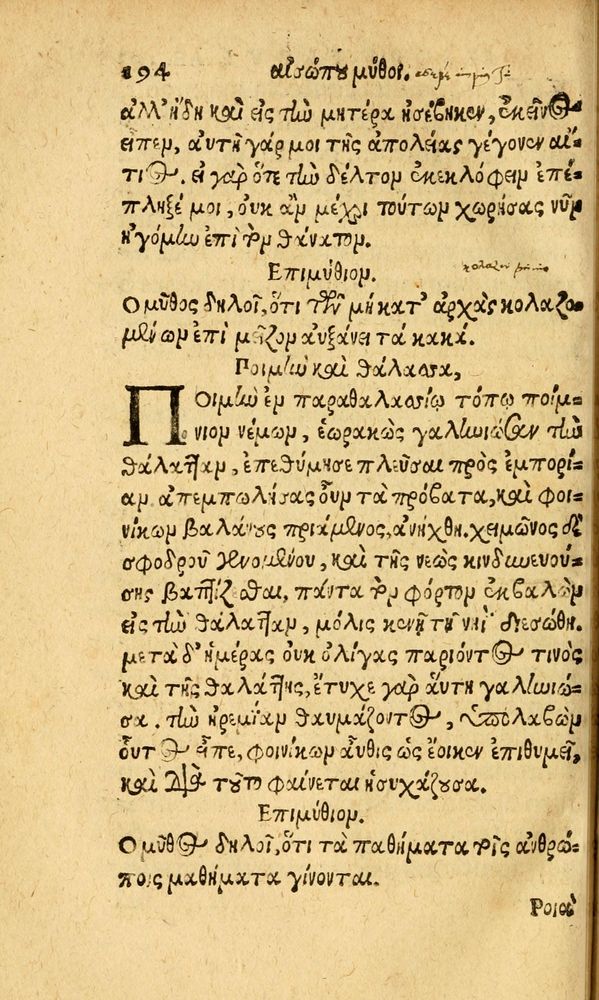 194 αἰσώπου μῦθοι.
ἀλλ' ἤδη καὶ εἰς τὴν μητέρα ἠσέβηκεν, ἐκεῖνος
εἶπεν, αὐτὴ γάρ μοι τῆς ἀπολείας γέγονεν αἴ-
τιος. εἰ γὰρ ὅτε τὴν δέλτον ἐκεκλόφειν ἐπέ-
πληξέ μοι, οὐκ ἂν μέχρι τούτων χωρήσας νῦν
ἠγόμην ἐπὶ τὸν θάνατον.
Ἐπιμύθιον.
Ὁ μῦθος δηλοῖ, ὅτι τῶν μὴ κατ' ἀρχὰς κολαζο-
μένων ἐπὶ μεῖζον αὐξάνει τὰ κακά.
Ποιμὴν καὶ θάλασσα,
Ποιμὴν ἐν παραθαλασσίῳ τόπῳ ποίμ-
νιον νέμων, ἑωρακὼς γαληνιῶσαν τὴν
θάλατταν, ἐπεθύμησε πλεῦσαι πρὸς ἐμπορί-
αν ἀπεμπωλήσας οὖν τὰ πρόβατα, καὶ φοι-
νίκων βαλάνους πριάμενος, ἀνήχθη. χειμῶνος δὲ
σφοδροῦ γενομένου, καὶ τῆς νεὼς κινδυνευού-
σης βαπτίζεσθαι, πάντα τὸν φόρτον ἐκβαλὼν
εἰς τὴν θάλατταν, μόλις κενῇ τῇ νηῒ διεσώθη.
μετὰ δ' ἡμέρας οὐκ ὀλίγας παριόντος τινὸς
καὶ τῆς θαλάττης, ἔτυχε γὰρ αὕτη γαληνιῶ-
σα. τὴν ἠρεμίαν θαυμάζοντος, ὑπολαβὼν
οὗτος εἶπε, φοινίκων αὖθις ὡς ἔοικεν ἐπιθυμεῖ,
καὶ διὰ τοῦτο φαίνεται ἡσυχάζουσα.
Ἐπιμύθιον.
Ὁ μῦθος δηλοῖ, ὅτι τὰ παθήματα τοῖς ἀνθρώ-
ποις μαθήματα γίνονται.
Ροιὰ